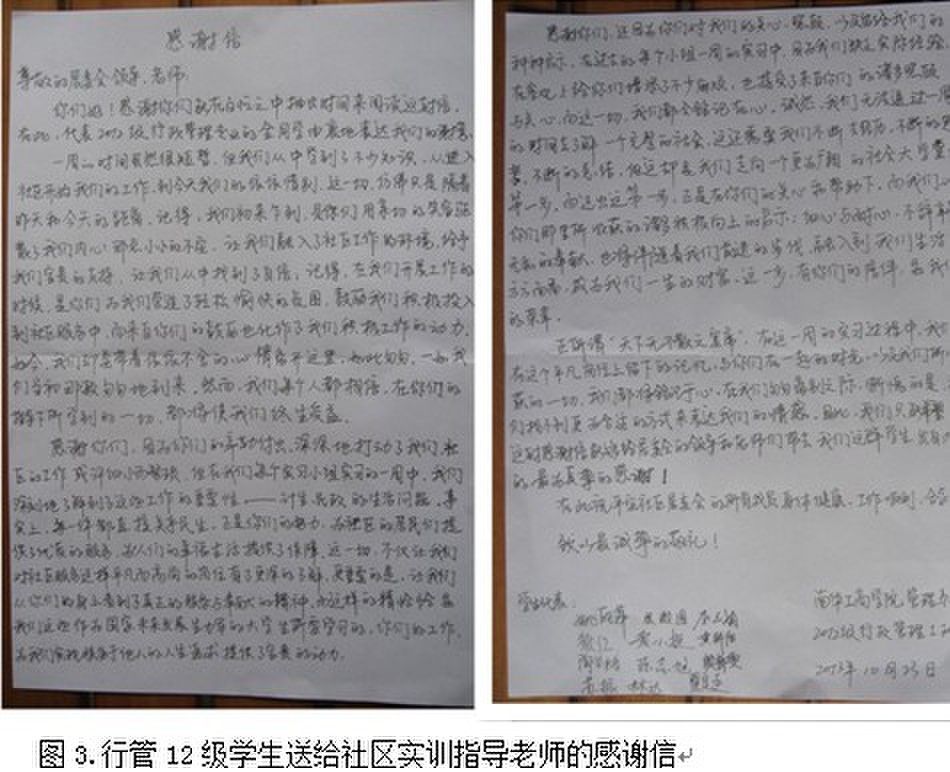 感谢信
尊敬的居委会领导、老师:
你们好!感谢你们能在百忙之中抽出时间来阅读这封信,
在此,代表2012级行政管理专业的全体同学由衷地表达我们的谢意。
一周的时间虽然很短暂,但我们从中学到了不少知识,从进入
社区开始我们的工作,到今天我们的依依惜别,这一切,仿佛只是隔着
昨天和今天的距离,记得,我们初来乍到,是你们用亲切的笑容驱
散了我们内心那点小小的不安,让我们融入了社区工作的环境,给予
我们宝贵的支持,让我们从中找到了自信;记得,在我们开展工作的
时候,是你们为我们营造了轻松愉快的氛围,鼓励我们积极投入
到社区服务中,而来自你们的鼓励也化作了我们积极工作的动力,
如今,我们却要带着依依不舍的心情离开这里,如此匆匆,一如我
们当初那般匆匆地到来,然而,我们每个人都相信,在你们的
指导下所学到的一切,都将使我们终生受益。
感谢你们,因为你们的辛勤付出,深深地打动了我们,社
区的工作或许细小而繁琐,但在我们每个实习小组实习的一周中,我们
深刻地了解到了这些工作的重要性——计生民政的生活问题,事
实上,每一件都直接关乎民生,正是你们的努力,为社区的居民们提
供了优质的服务,为人们的幸福生活提供了保障,这一切,不仅让我们
对社区服务这样平凡而高尚的岗位有了更深的了解,更重要的是,让我们
从你们的身上看到了真正的服务与奉献的精神,而这样的精神恰是
我们这些作为国家未来发展生力军的大学生所要学习的,你们的工作,
为我们实现服务于他人的人生追求提供了宝贵的动力。
感谢你们,还因为你们对我们的关心、照顾,以及留给我们的
种种启示,在过去的每个小组一周的实习中,因为我们缺乏实际经验
在客观上给你们增添了不少麻烦,也接受了来自你们的诸多照顾
与关心,而这一切,我们都会铭记在心,诚然,我们无法通过一周
的时间去了解一个完整的社会,这还需要我们不断去努力,不断的
不断的总结,但这却是我们走向一个更为广阔的社会大学堂
第一步,而迈出这第一步,正是在你们的关心和帮助下,而我们
你们那里所收获的诸多积极向上的启示:细心与耐心,不辞辛
无私的奉献,也将伴随着我们前进的步伐,融入到我们生活
方方面面,成为我们一生的财富,这一步,有你们的陪伴,是我们
的荣幸。
正所谓“天下无不散之宴席”,在这一周的实习过程中,我
在这个平凡岗位上留下的记忆,与你们在一起的时光,以及我们所
获的一切,我们都将铭记于心,在我们匆匆离别之际,
们找不到更为合适的方式来表达我们的情感,因此,我们只能
这封感谢信献给居委会的领导和老师们带去我们这群学生
的最为真挚的感谢!
在此祝平安社区居委会的所有成员身体健康,工作顺利,合
致以最诚挚的敬礼!
学生代表:
南华工商学院管理系
2012级行政管理
2013年10月25日
图 3.行管 12 级学生送给社区实训指导老师的感谢信